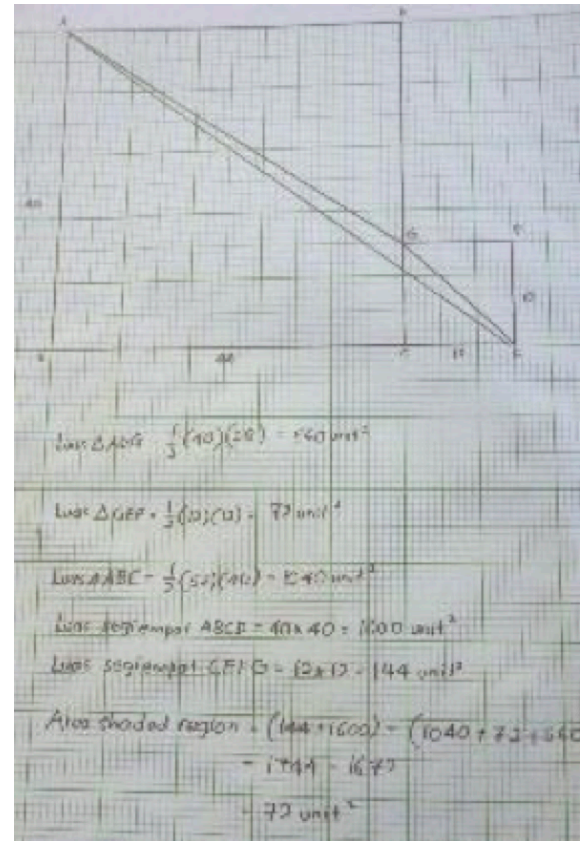 A
G
40
10
40
Luas ΔADG = ½(40)(28) = 560 unit²
Luas ΔGEF = ½(12)(12) = 72 unit²
Luas ΔABE = ½(52)(40) = 1040 unit²
Luas segiempat ABCD = 40 x 40 = 1600 unit²
Luas segiempat CEFG = 12 x 12 = 144 unit²
Area shaded region = (144 + 1600) - (1040 + 72 + 560
= 1744 - 1672
= 72 unit²